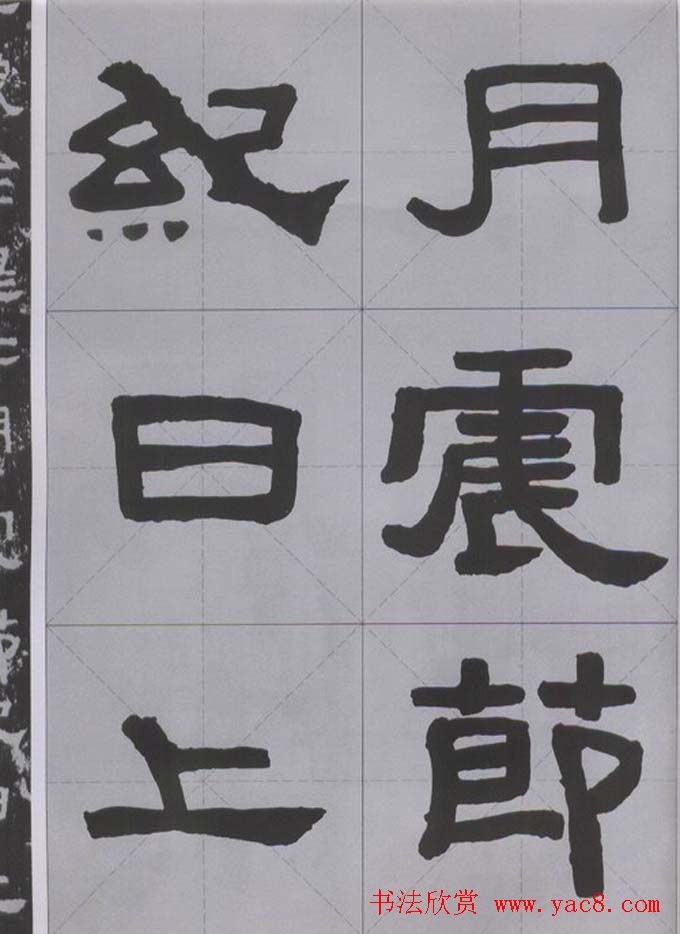 月震節
紀日上
书法欣赏 www.yac8.com